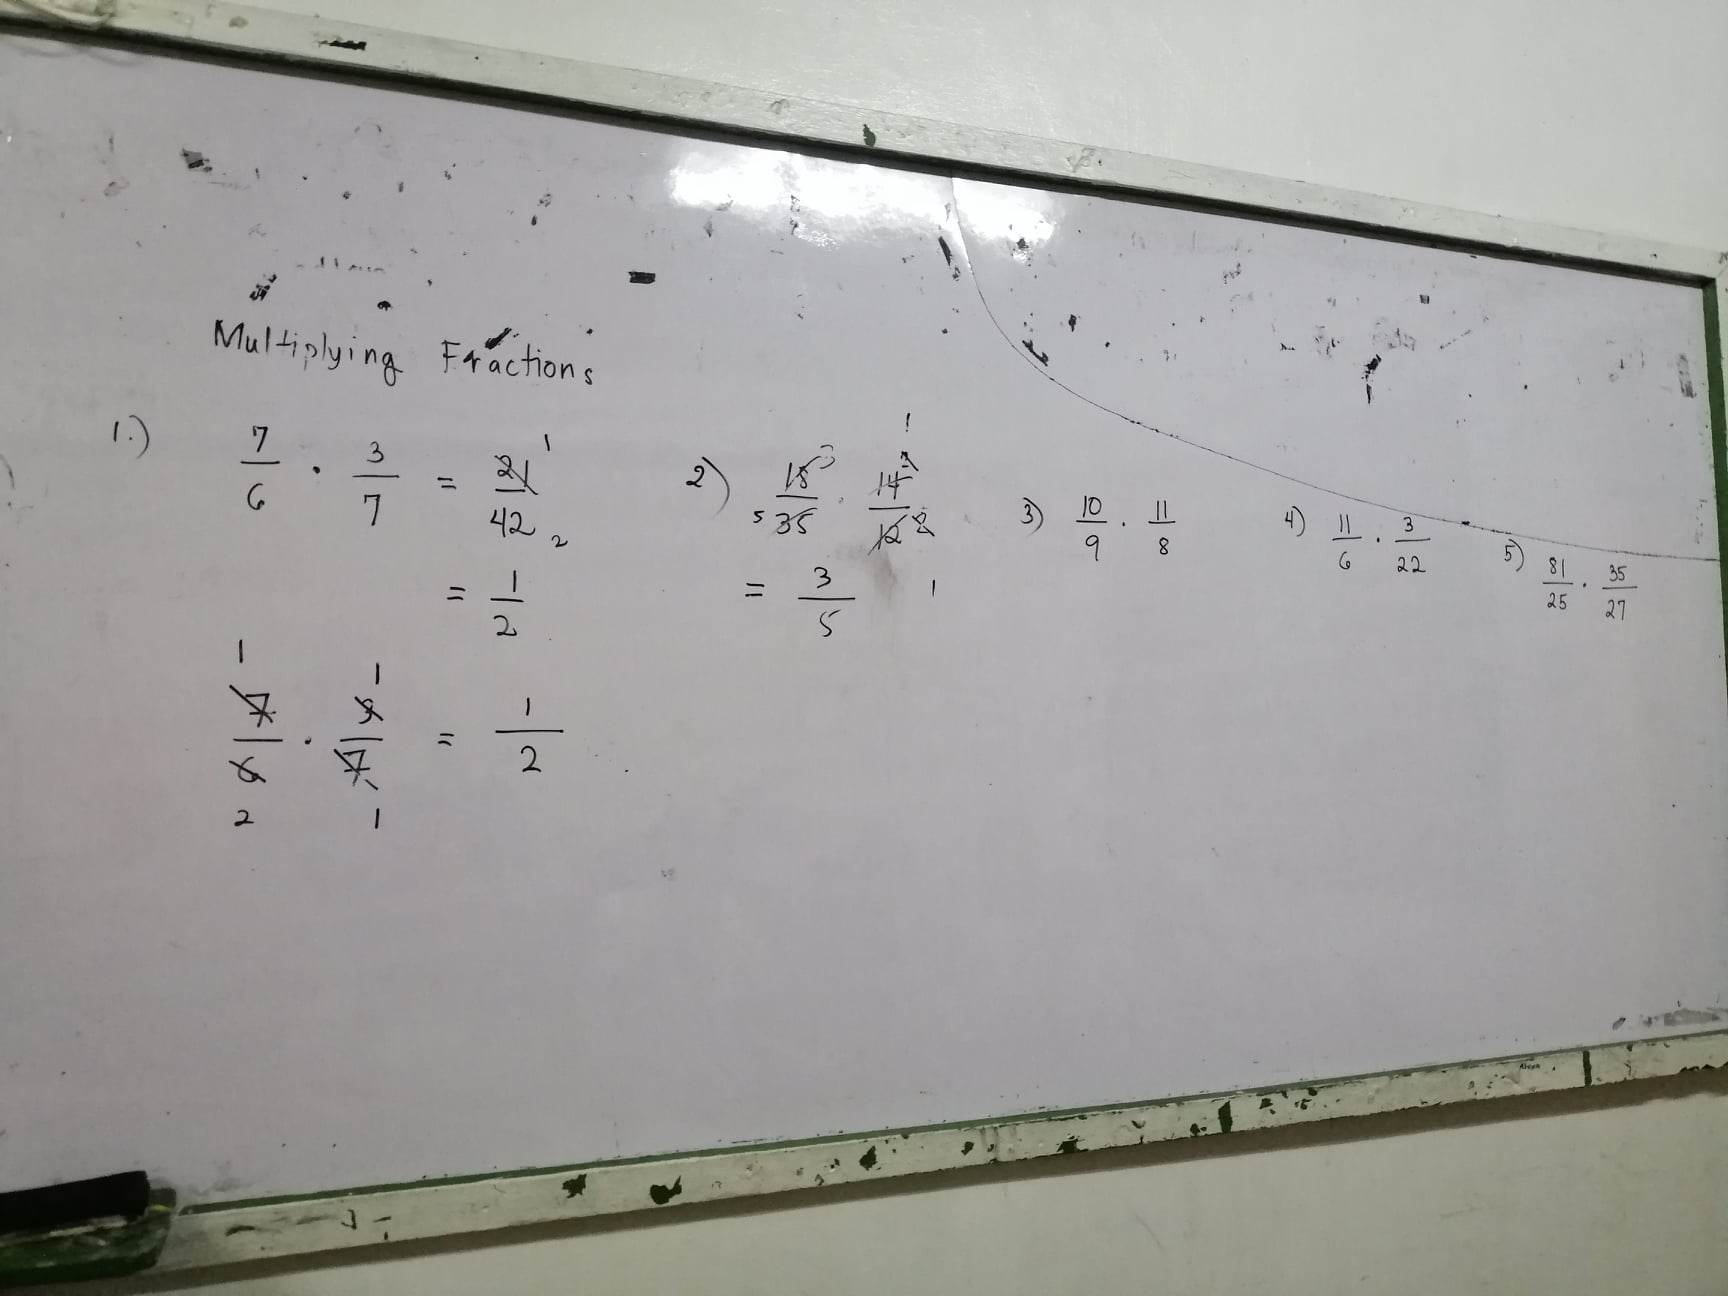 Multiplying Fractions
1.) 7/6 · 3/7 = 21/42 1 2
= 1/2
1 1
7/6 · 3/7 = 1/2
2 1
2) 18/35 · 14/12 3 5 2 1 2
= 3/5 1
3) 10/9 · 11/8
4) 11/6 · 3/22
5) 81/25 · 35/27